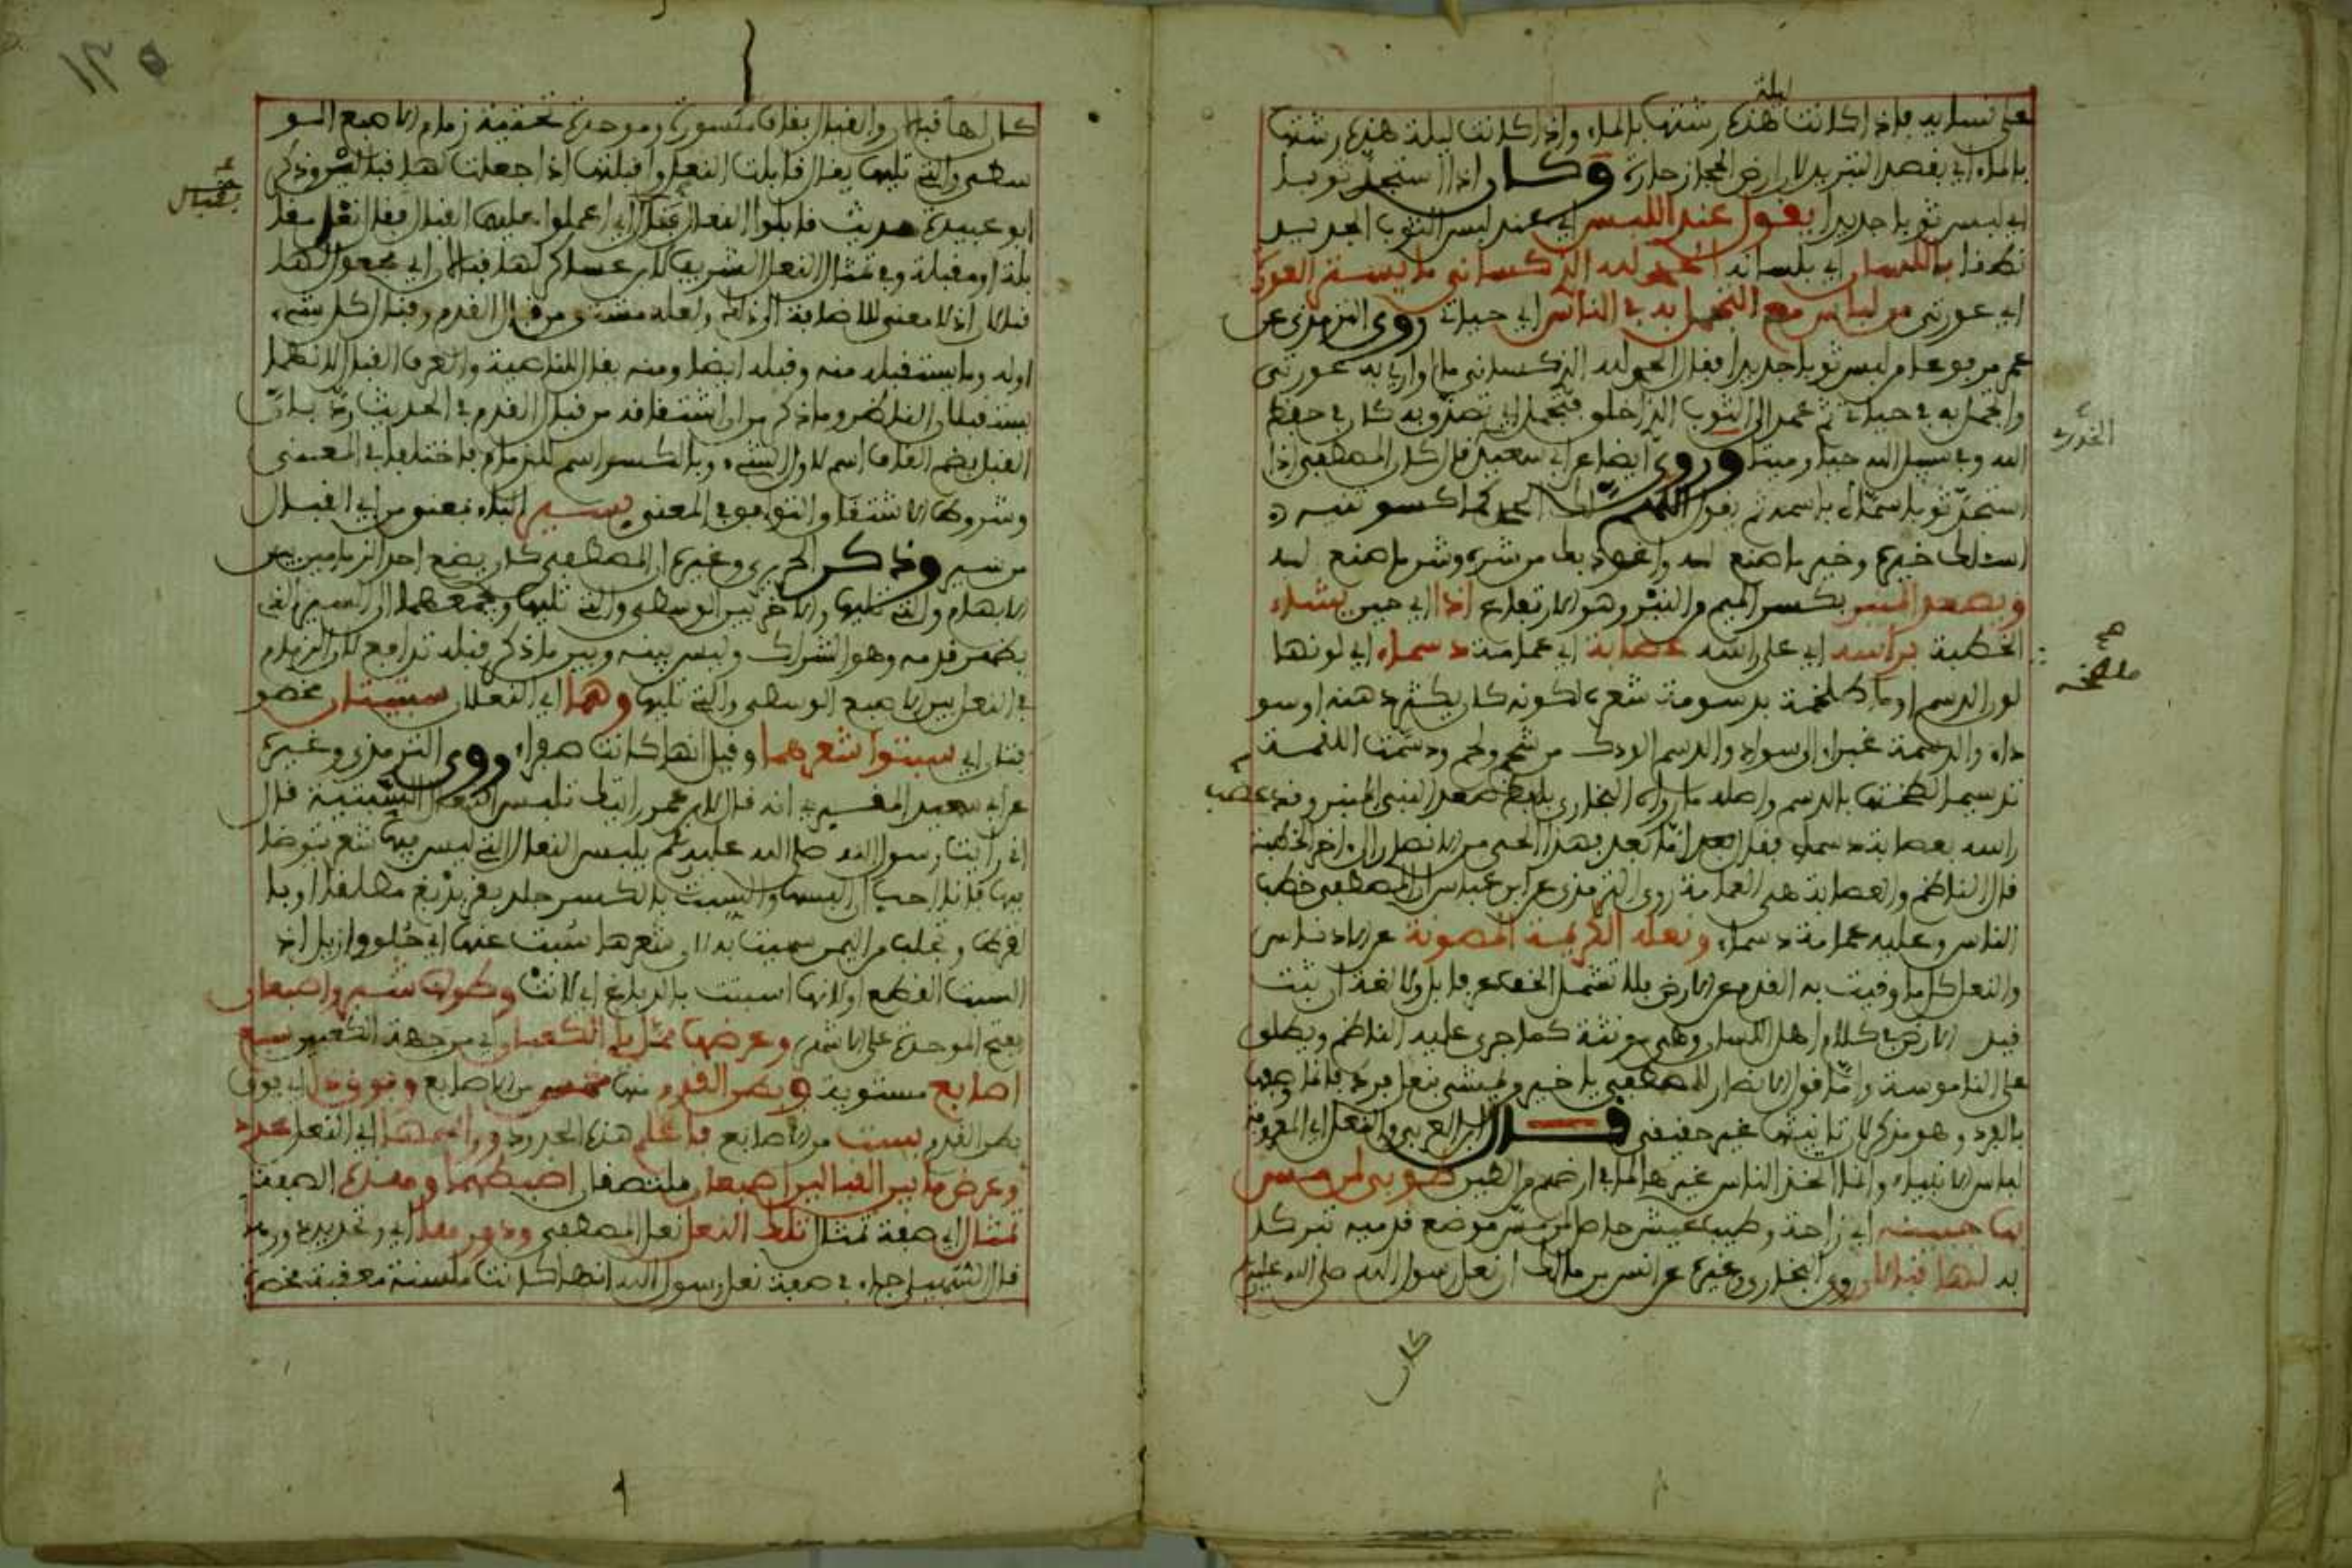 ليلة
على نسائه فإذا كانت ليلة هذه رشتها بالماء وإذا كانت ليلة هذه رشتها
بالماء أي بقصد التبريد لأن أرض الحجاز حارة وكان إذا استجد ثوبا
أي لبس ثوبا جديدا يقول عند اللبس أي عند لبس الثوب الجديد
نطقا باللسان أي بلسانه الحمد لله الذي كساني ما يستر العورة
أي عورتي من لباس مع التجمل به في الناس أي حياتي روى الترمذي عن
عمر مرفوعا من لبس ثوبا جديدا فقال الحمد لله الذي كساني ما أواري به عورتي
وأتجمل به في حياتي ثم عمد إلى الثوب الذي أخلق فتصدق به كان في حفظ
الله وفي سبيل الله حيا وميتا وروى أيضا عن أبي سعيد قال كان المصطفى إذا
الخدري
استجد ثوبا سماه باسمه ثم يقول اللهم لك الحمد كما كسوتنيه
أسئلك خيره وخير ما صنع له وأعوذ بك من شره وشر ما صنع له
ويصعد المنبر بكسر الميم والنبر وهو الارتفاع إذا أي حين يشاء
الخطبة برأسه أي على رأسه عصابة أي عمامة دسماء أي لونها
لون الدسم أو ملطخة بدسومة شعره لكونه كان يكثر دهنه أو سو
داء والدسمة غبراء إلى سواد والدسم الودك من شحم ولحم ودسمت اللقمة
تدسيما لطختها بالدسم وأصله ما رواه البخاري بلفظ صعد النبي المنبر وقد عصب
رأسه بعصابة دسماء فقال أما بعد فهذا الحي من الأنصار إلى آخر الخطبة
قال الناظم والعصابة هي العمامة روى الترمذي عن ابن عباس أن المصطفى خطب
الناس وعليه عمامة دسماء ونعله الكريمة المصونة عن الأدناس
والنعل كل ما وقيت به القدم عن الأرض فلا تشمل الخف
قيل الأرض في كلام أهل اللسان وهي مونثة كما جرى عليه الناظم ويطلق
على التاموسة وأما قول الأنصار للمصطفى يا خير من يمشي بنعل فرد فإنما وصفها
بالفرد وهو مذكر لأن تانيثها غير حقيقي قال ابن العربي والنعل
لباس الأنبياء وإنما اتخذ الناس غيرها لما في أرضهم من الطين طوبى لمن مس
بها جبينه أي راحة وطيب عيش حاصل لمن مس موضع قدميه تبركا
به لها قبالان روى البخاري وغيره عن أنس بن مالك أن نعل رسول الله صلى الله عليه
كان
١٢٥
كان لها قبالان والقبال بقاف مكسورة وموحدة تحتية زمام الأصبع الو
سطى والتي تليها يقال قابلت النعل وأقبلتها إذا جعلت لها قبالين وذكر
أبو عبيدة حديث قابلوا النعال أي اعملوا عليها القبال
بلة أو مقبلة وفي تمثال النعل الشريف لابن عساكر لها قبالان أي مجعول لها
قبالان إذ لا معنى للإضافة ولعله مشتق من قبال القدم وقبال كل شيء
أوله وما يستقبلك منه وقبله أيضا ومنه يقال للناصية والعرف القبال لأنهما
يستقبلان الناظر وما ذكر من أن اشتقاقه من قبال القدم في الحديث رد بأن
القبل بضم القاف اسم لأول الشيء وبالكسر اسم للزمام فاختلفا في المعنى
وشروط الاشتقاق التوافق في المعنى بسير
من سير وذكر الجزري وغيره أن المصطفى كان يضع أحد الزمامين بين
الإبهام والتي تليها والآخر بين الوسطى والتي تليها ويجمعهما إلى السير الذي
بظهر قدمه وهو الشراك وليس بينه وبين ما ذكر قبله تدافع لأن الزمام
في النعل بين الأصبع الوسطى والتي تليها وهما أي النعلان سبتيتان
سبتوا شعرهما وقيل إنها كانت صفراء روى الترمذي وغيره
عن أبي سعيد المقبري أنه قال لابن عمر رأيتك تلبس النعال السبتية قال
إني رأيت رسول الله صلى الله عليه وسلم يلبس النعال التي ليس فيها شعر يتوضأ
فيها فأنا أحب أن ألبسها والسبت بالكسر جلد بقر يدبغ مطلقا أو با
لقرظ وتجلب من اليمن سميت به لأن شعرها سبت عنها أي حلق وأزيل إذ
السبت القطع أو لأنها انسبتت بالدباغ أي لانت وطولها شبر وأصبعان
بفتح الموحدة على الأشهر وعرضها مما يلي الكعبان أي من جهة الكعبين سبع
أصابع مستوية وبطن القدم منها خمس من الأصابع وفوق ذا أي فوق
بطن القدم بست من الأصابع فاعلم هذه الحدود ورأسها أي النعل محدد
وعرض ما بين القبالين أصبعان ملتصقان اضبطهما وهذه الصفة
تمثال أي صفة تمثال تلك النعل نعل المصطفى ودورها أي وتحديد دورها
قال الشمس جاء في صفة نعل رسول الله أنها كانت ملسنة معقبة مخصرة